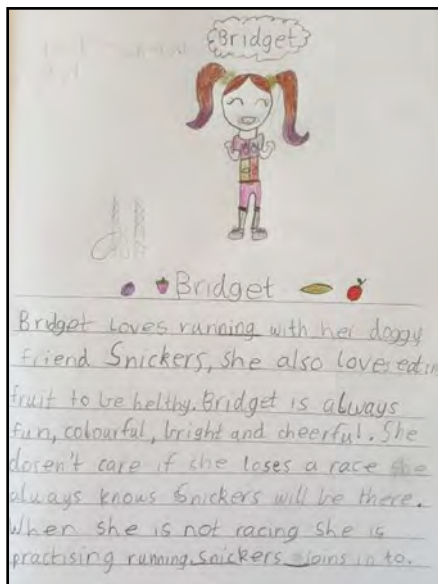 Bridget
Bridget
Bridget loves running with her doggy
friend Snickers, she also loves eatin
fruit to be helthy. Bridget is always
fun, colourful, bright and cheerful. She
dosen't care if she loses a race she
always knows Snickers will be there.
When she is not racing she is
practising running. Snickers joins in to.